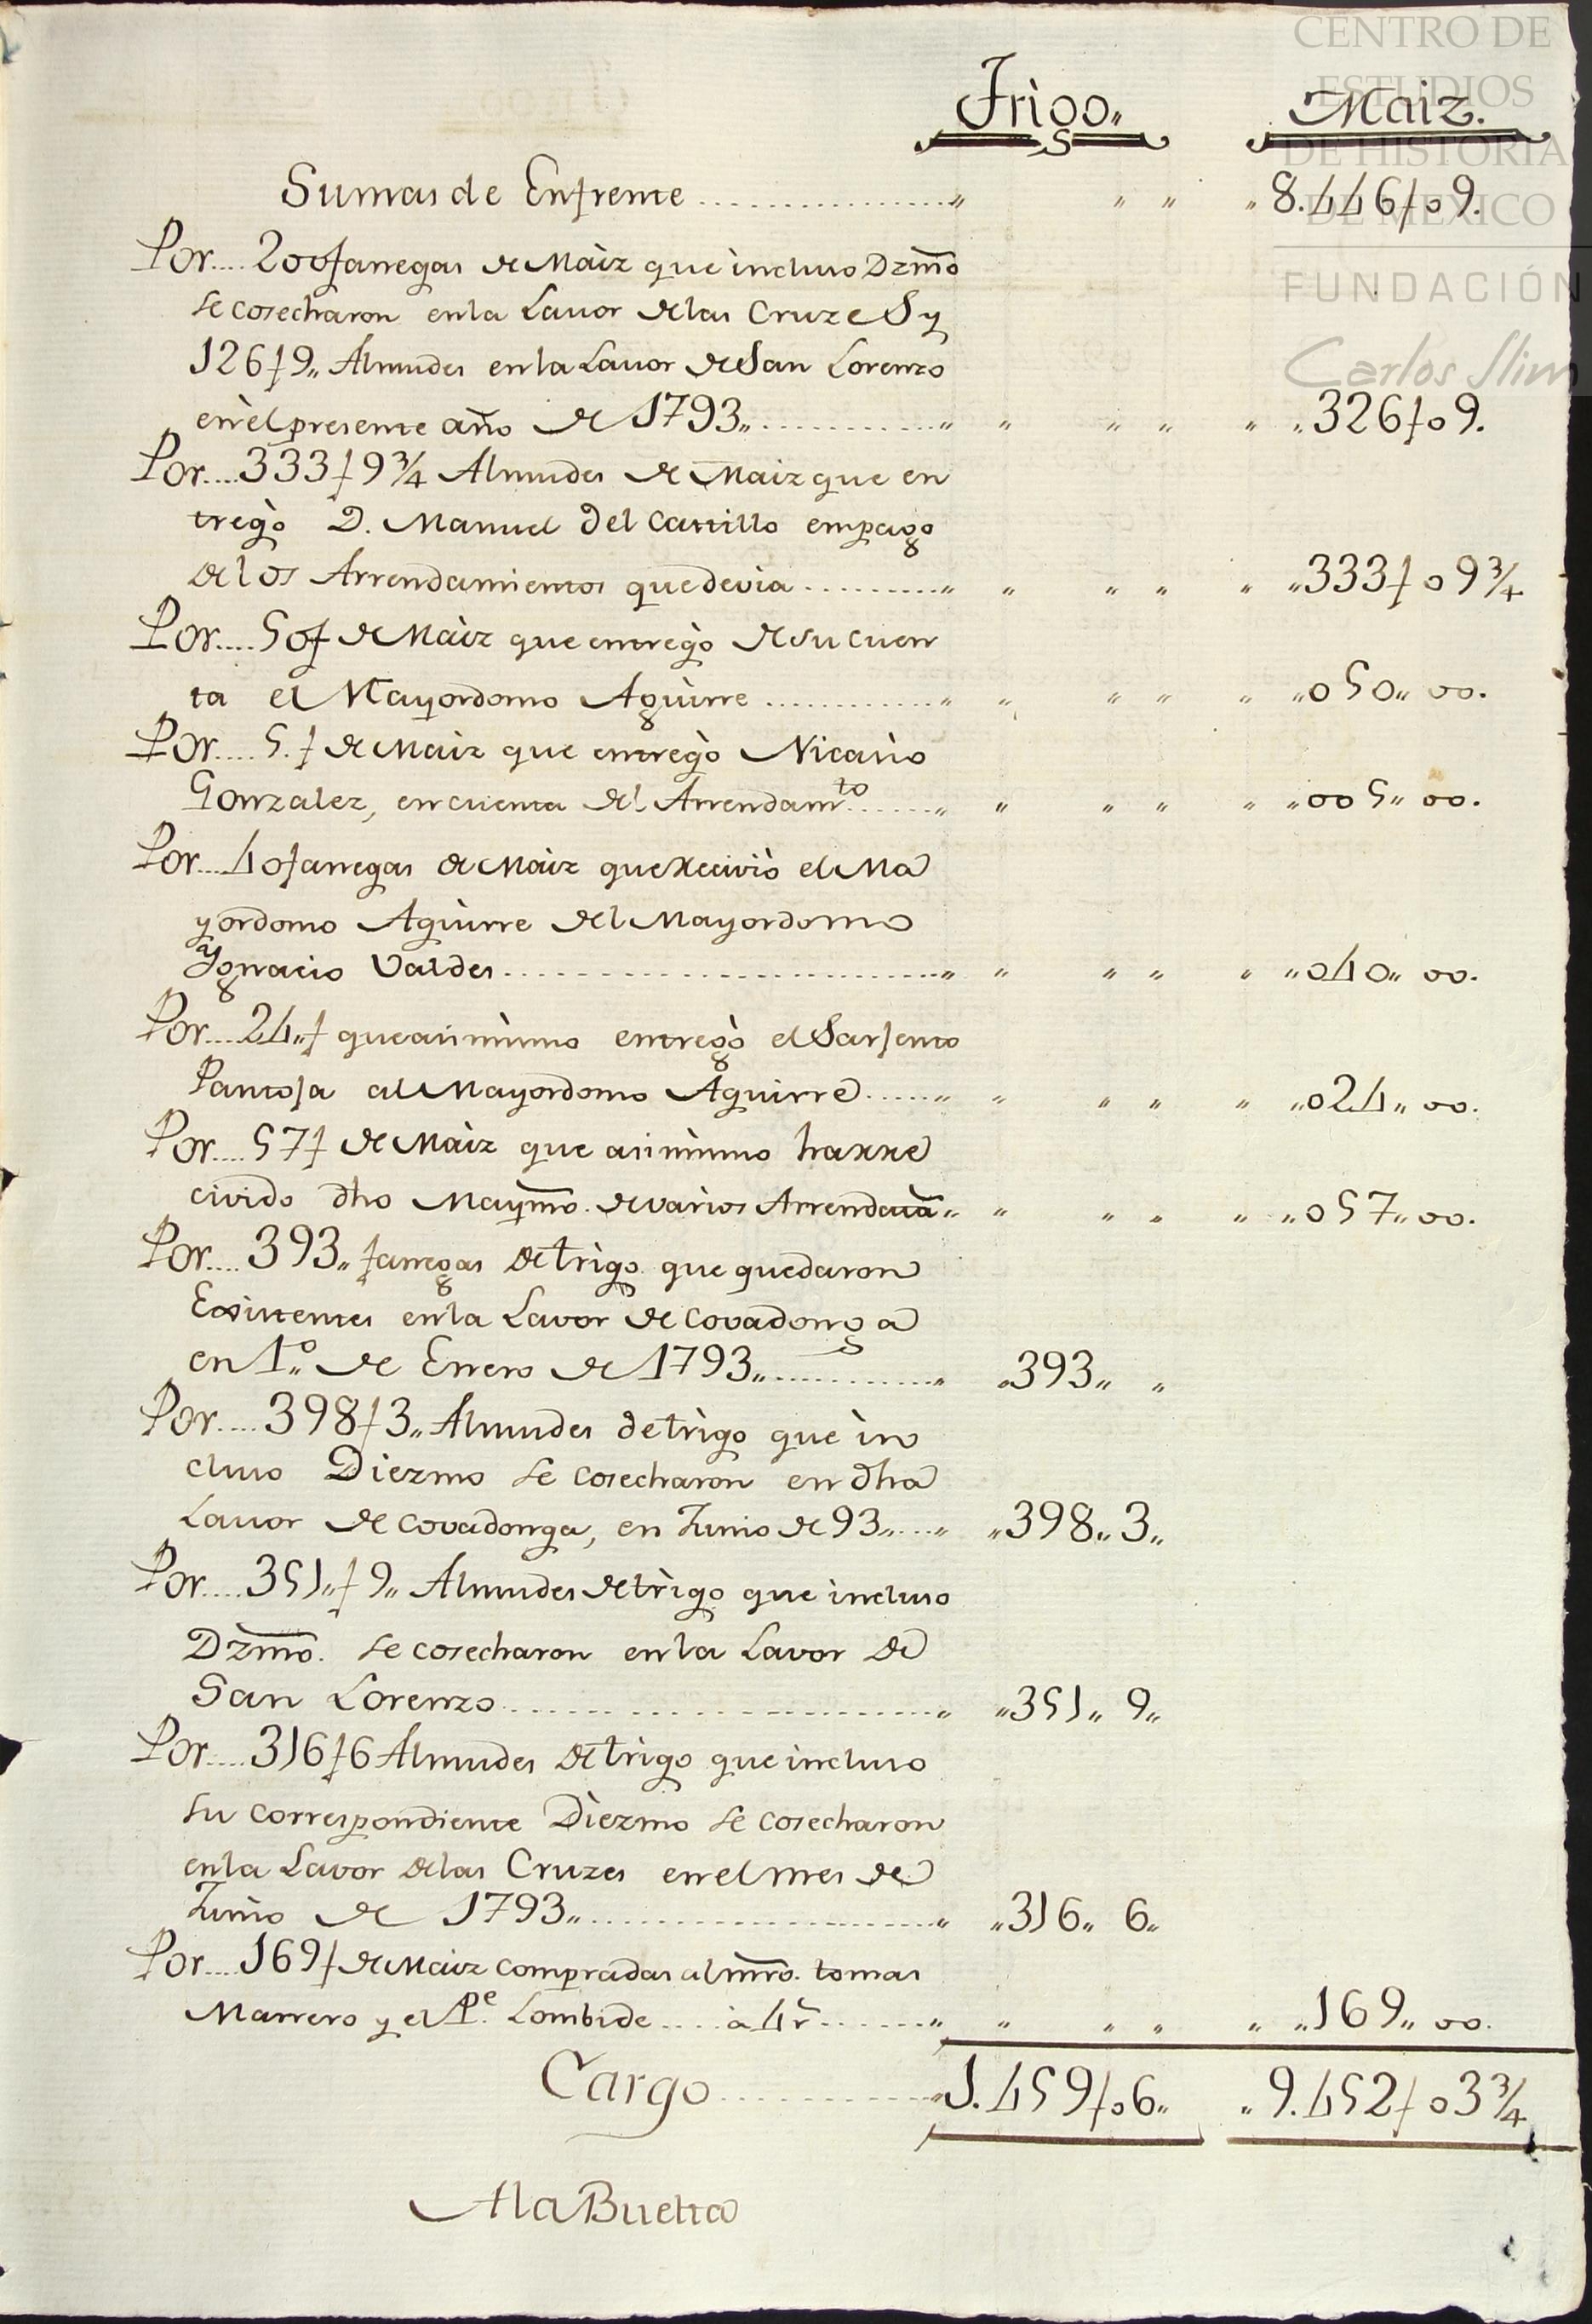 CENTRO DE
ESTUDIOS
DE HISTORIA
DE MEXICO
FUNDACIÓN
Carlos Slim
Trigo,, Maiz.
Sumas de Enfrente ,, ,, ,, ,, 8.446f09.
Por.... 200fanegas de Màiz que incluso Dzmo
se cosecharon en la Lavor de las Cruzes y
126f9,, Almudes en la Lavor de San Lorenzo
en el presente año de 1793,, ,, ,, ,, ,, ,, ,,326f09.
Por.... 333f9¾ Almudes de Maiz que en
tregò D. Manuel del Castillo em pago
de los Arrendamientos que devia ,, ,, ,, ,, ,, ,,333f09¾
Por.... 50f de Màiz que entregò de su cuen
ta el Mayordomo Aguirre ,, ,, ,, ,, ,, ,,050,, 00.
Por.... 5.f de Maiz que entregò Nicasio
Gonzalez, en cuenta del Arrendamto ,, ,, ,, ,, ,, ,,005,, 00.
Por... 40fanegas de Màiz que Recivió el Ma
yordomo Aguirre del Mayordomo
Ygnacio Valdes ,, ,, ,, ,, ,, ,,040,, 00.
Por.... 24,,f que asimismo entregò el Sarjento
Pantoja al Mayordomo Aguirre ,, ,, ,, ,, ,, ,,024,, 00.
Por.... 57f de Màiz que asimismo ha rre
civido dho Mayrmo. de varios Arrendata ,, ,, ,, ,, ,, ,,057,, 00.
Por.... 393,, fanegas de trigo que quedaron
Existentes en la Lavor de Covadonga
en 1.º de Enero de 1793,, ,, ,,393,, ,,
Por.... 398f3,, Almudes de trigo que in
cluso Diezmo se cosecharon en dha
Lavor de Covadonga, en Junio de 93,, ,, ,,398,, 3,,
Por.... 351,,f9,, Almudes de trigo que incluso
Dzmo. se cosecharon en la Lavor de
San Lorenzo ,, ,,351,, 9,,
Por.... 316f6 Almudes de trigo que incluso
su correspondiente Diezmo se cosecharon
en la Lavor de las Cruzes en el mes de
Junio de 1793,, ,, ,,316,, 6,,
Por... 169f de Maiz compradas al mro. tomas
Marrero y el Pe. Lombide .... à 4r ,, ,, ,, ,, ,, ,,169,, 00.
Cargo ,,1.459f06,, ,,9.452f03¾
A la Buelta